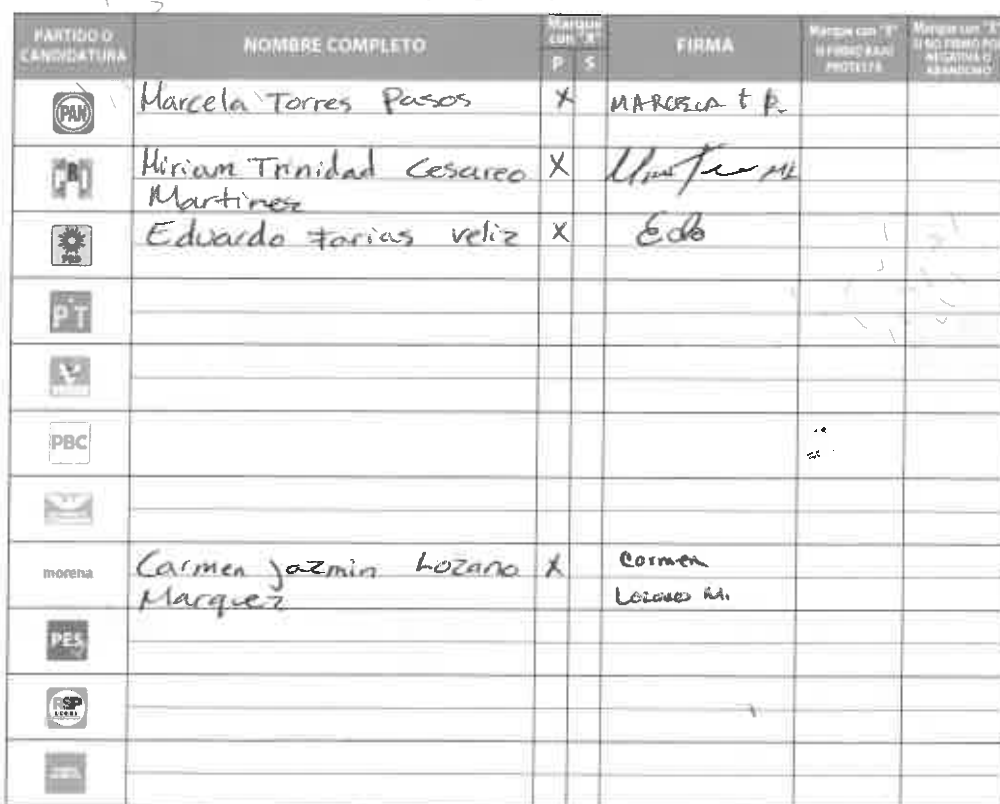 PARTIDO O CANDIDATURA NOMBRE COMPLETO Marque con "X" P S FIRMA Marque con "X" SI FIRMÓ BAJO PROTESTA Marque con "X" SI NO FIRMÓ POR NEGATIVA O ABANDONO
PAN Marcela Torres Pasos X MARCELA t P.
PRI Miriam Trinidad Cesareo X
Martinez
PRD Eduardo Farias veliz X Edo
PT
PBC
morena Carmen Jazmin Lozano X Carmen
Marquez Lozano M.
PES
RSP